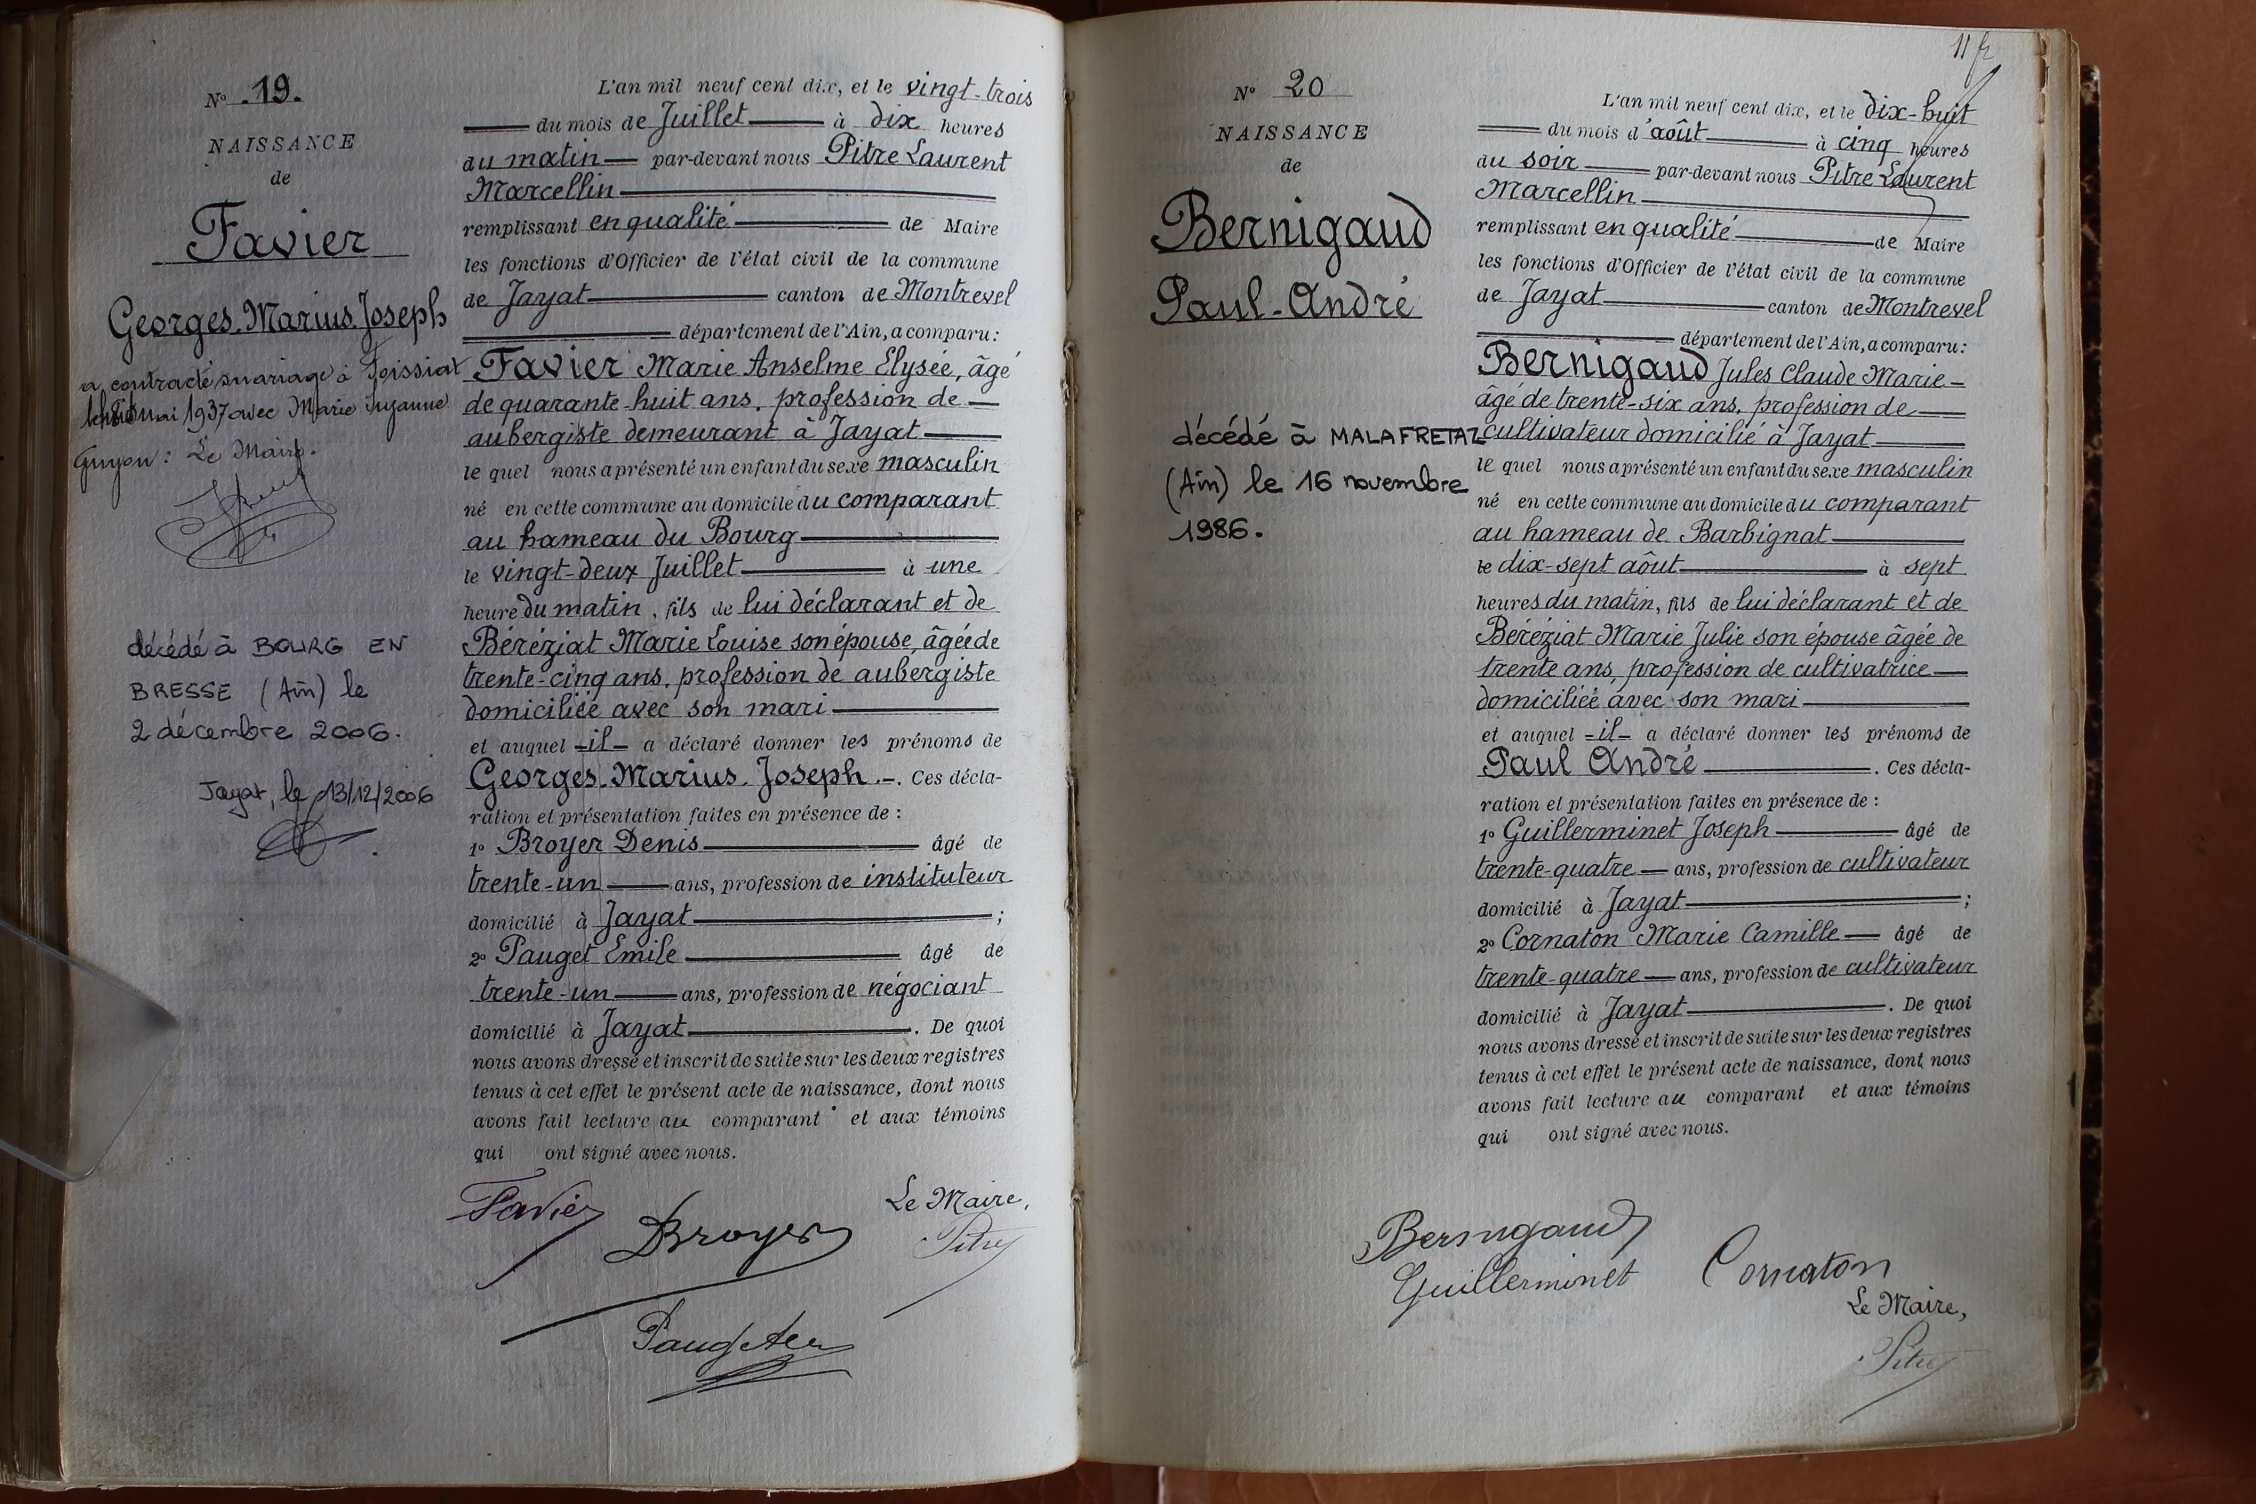 Nº 19.
NAISSANCE
de
Favier
Georges. Marius. Joseph
a contracté mariage à Foissiat
le huit mai 1937 avec Marie Suzanne
Guyon : Le Maire.
décédé à BOURG EN
BRESSE (Ain) le
2 décembre 2006.
Jayat, le 13/12/2006
L'an mil neuf cent dix, et le vingt-trois
du mois de Juillet à dix heures
du matin par-devant nous Pitre Laurent
Marcellin
remplissant en qualité de Maire
les fonctions d'Officier de l'état civil de la commune
de Jayat canton de Montrevel
département de l'Ain, a comparu :
Favier Marie Anselme Elysée, âgé
de quarante-huit ans, profession de
aubergiste demeurant à Jayat
le quel nous a présenté un enfant du sexe masculin
né en cette commune au domicile du comparant
au hameau du Bourg
le vingt-deux Juillet à une
heure du matin, fils de lui déclarant et de
Béréziat Marie Louise son épouse, âgée de
trente-cinq ans, profession de aubergiste
domiciliée avec son mari
et auquel -il- a déclaré donner les prénoms de
Georges. Marius. Joseph -. Ces décla-
ration et présentation faites en présence de :
1º Broyer Denis âgé de
trente-un ans, profession de instituteur
domicilié à Jayat ;
2º Pauget Emile âgé de
trente-un ans, profession de négociant
domicilié à Jayat . De quoi
nous avons dressé et inscrit de suite sur les deux registres
tenus à cet effet le présent acte de naissance, dont nous
avons fait lecture au comparant et aux témoins
qui ont signé avec nous.
Favier
DBroyer
Le Maire,
Pitre
Pauget
11
Nº 20
NAISSANCE
de
Bernigaud
Paul-André
décédé à MALAFRETAZ
(Ain) le 16 novembre
1986.
L'an mil neuf cent dix, et le dix-huit
du mois d'août à cinq heures
du soir par-devant nous Pitre Laurent
Marcellin
remplissant en qualité de Maire
les fonctions d'Officier de l'état civil de la commune
de Jayat canton de Montrevel
département de l'Ain, a comparu :
Bernigaud Jules Claude Marie-
âgé de trente-six ans, profession de
cultivateur domicilié à Jayat
le quel nous a présenté un enfant du sexe masculin
né en cette commune au domicile du comparant
au hameau de Barbignat
le dix-sept août à sept
heures du matin, fils de lui déclarant et de
Béréziat Marie Julie son épouse âgée de
trente ans, profession de cultivatrice
domiciliée avec son mari
et auquel -il- a déclaré donner les prénoms de
Paul André . Ces décla-
ration et présentation faites en présence de :
1º Guillerminet Joseph âgé de
trente-quatre ans, profession de cultivateur
domicilié à Jayat ;
2º Cornaton Marie Camille âgé de
trente-quatre ans, profession de cultivateur
domicilié à Jayat . De quoi
nous avons dressé et inscrit de suite sur les deux registres
tenus à cet effet le présent acte de naissance, dont nous
avons fait lecture au comparant et aux témoins
qui ont signé avec nous.
Bernigaud
Guillerminet
Cornaton
Le Maire,
Pitre